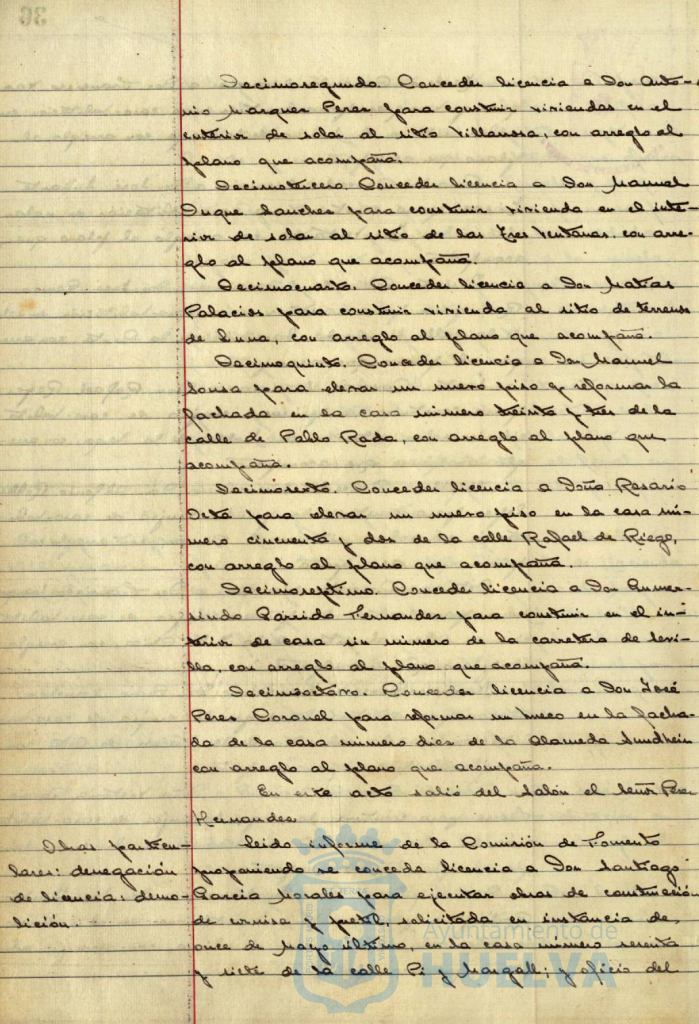 36
Decimosegundo. Conceder licencia a Don Anto-
nio Marquez Perez para construir viviendas en el
interior de solar al sitio Villarrosa, con arreglo al
plano que acompaña.
Decimotercero. Conceder licencia a Don Manuel
Duque Sanchez para construir vivienda en el inte-
rior de solar al sitio de las Tres Ventanas, con arre-
glo al plano que acompaña.
Decimocuarto. Conceder licencia a Don Matias
Palacios para construir vivienda al sitio de terrenos
de Luna, con arreglo al plano que acompaña.
Decimoquinto. Conceder licencia a Don Manuel
Sousa para elevar un nuevo piso y reformar la
fachada en la casa número treinta y tres de la
calle de Pablo Rada, con arreglo al plano que
acompaña.
Decimosexto. Conceder licencia a Doña Rosario
para elevar un nuevo piso en la casa nú-
mero cincuenta y dos de la calle Rafael de Riego,
con arreglo al plano que acompaña.
Decimoseptimo. Conceder licencia a Don Gumer-
sindo Garrido Fernandez para construir en el in-
terior de casa sin número de la carretera de Sevi-
lla, con arreglo al plano que acompaña.
Decimoctavo. Conceder licencia a Don José
Perez Coronel para reformar un hueco en la facha-
da de la casa número diez de la Alameda Sundhein
con arreglo al plano que acompaña.
En este acto salió del Salón el Señor Perez
Hernandez
Obras particu-
lares: denegación
de licencia: demo-
lición.
Leido informe de la Comisión de Fomento
proponiendo se conceda licencia a Don Santiago
Garcia Morales para ejecutar obras de construcción
de cornisa y pretil, solicitada en instancia de
once de Mayo último, en la casa número sesenta
y siete de la calle Pi y Margall; y oficio del
Ayuntamiento de
HUELVA